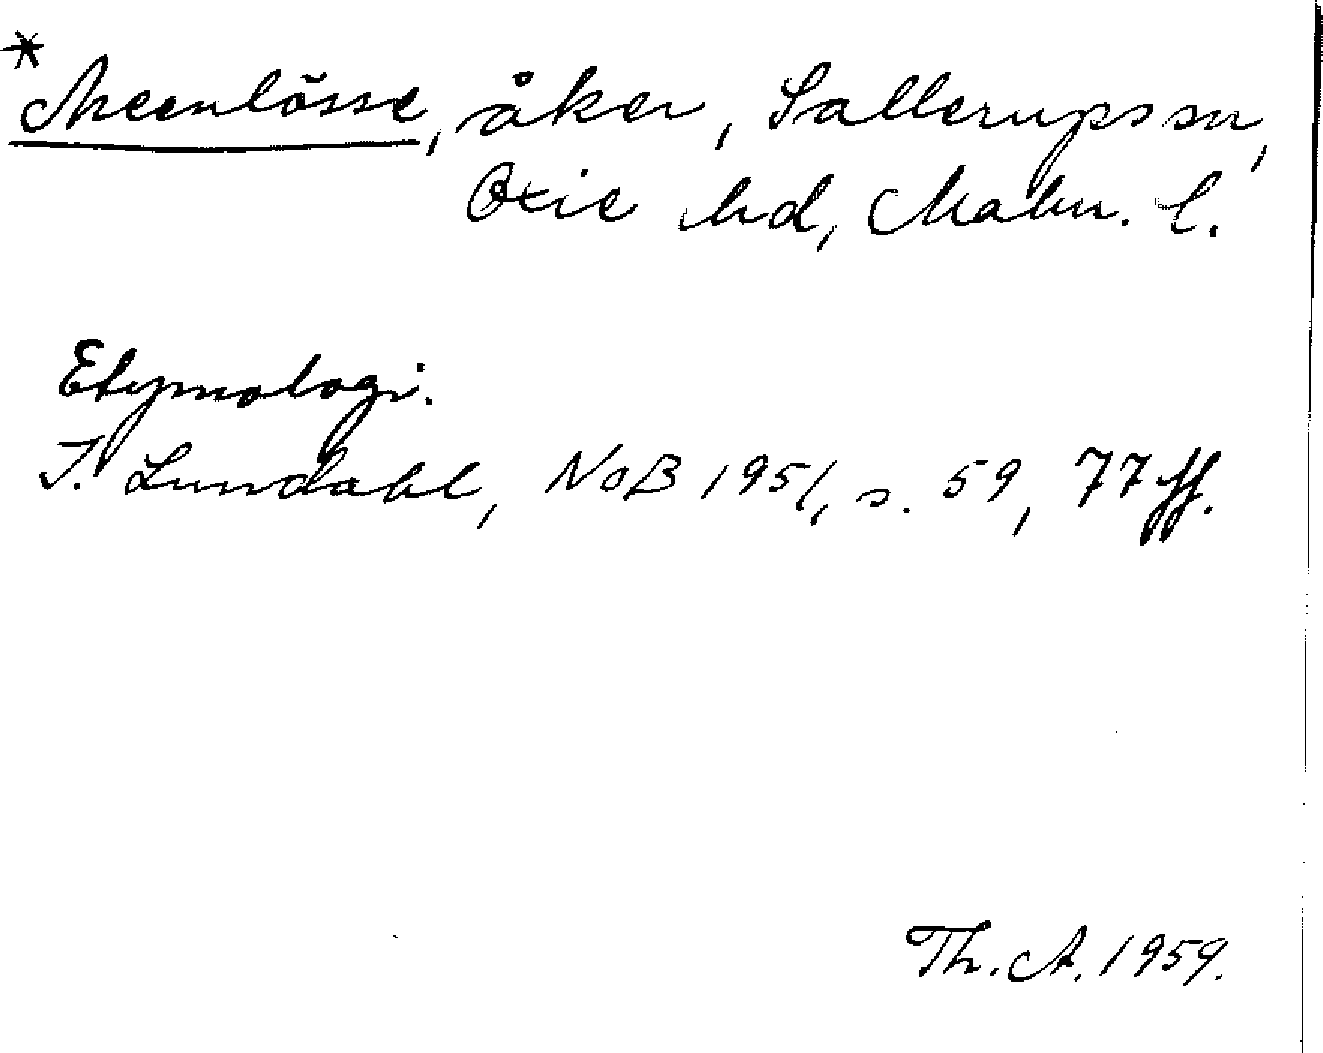 *
Meenlösse, åker, Sallerups sn,
Oxie hd, Malm. l.
Etymologi.
I. Lundahl, NoB 1951, s. 59, 77 ff.
Th. A. 1959.